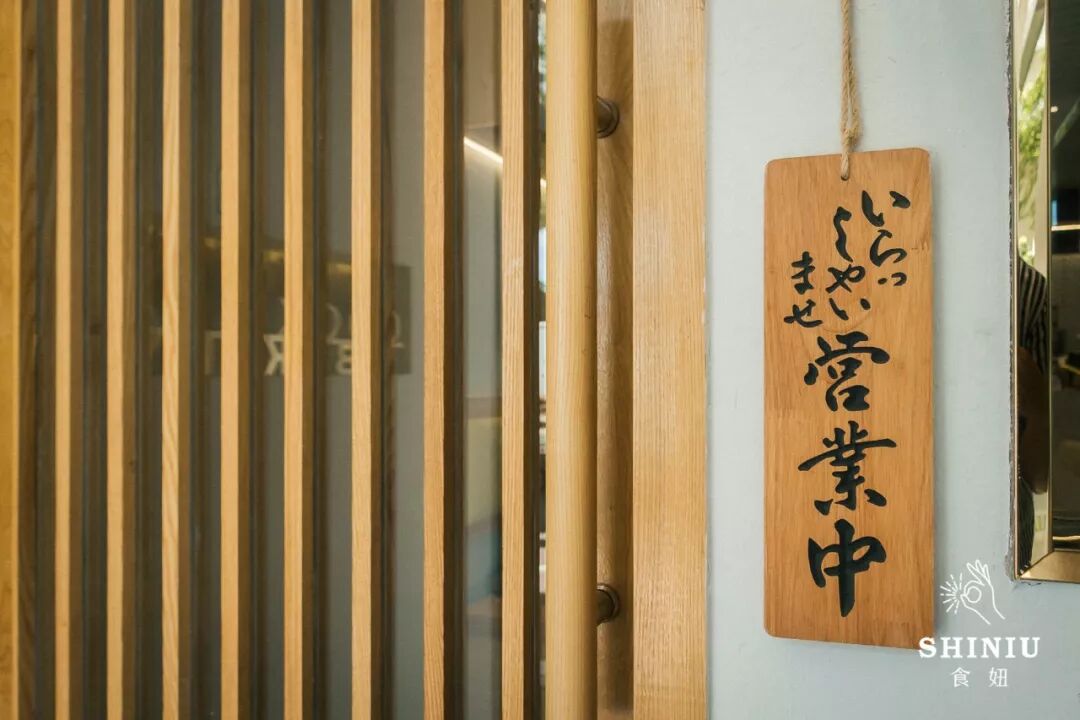 いらっ
しゃい
ませ
営業中
SHINIU
食妞